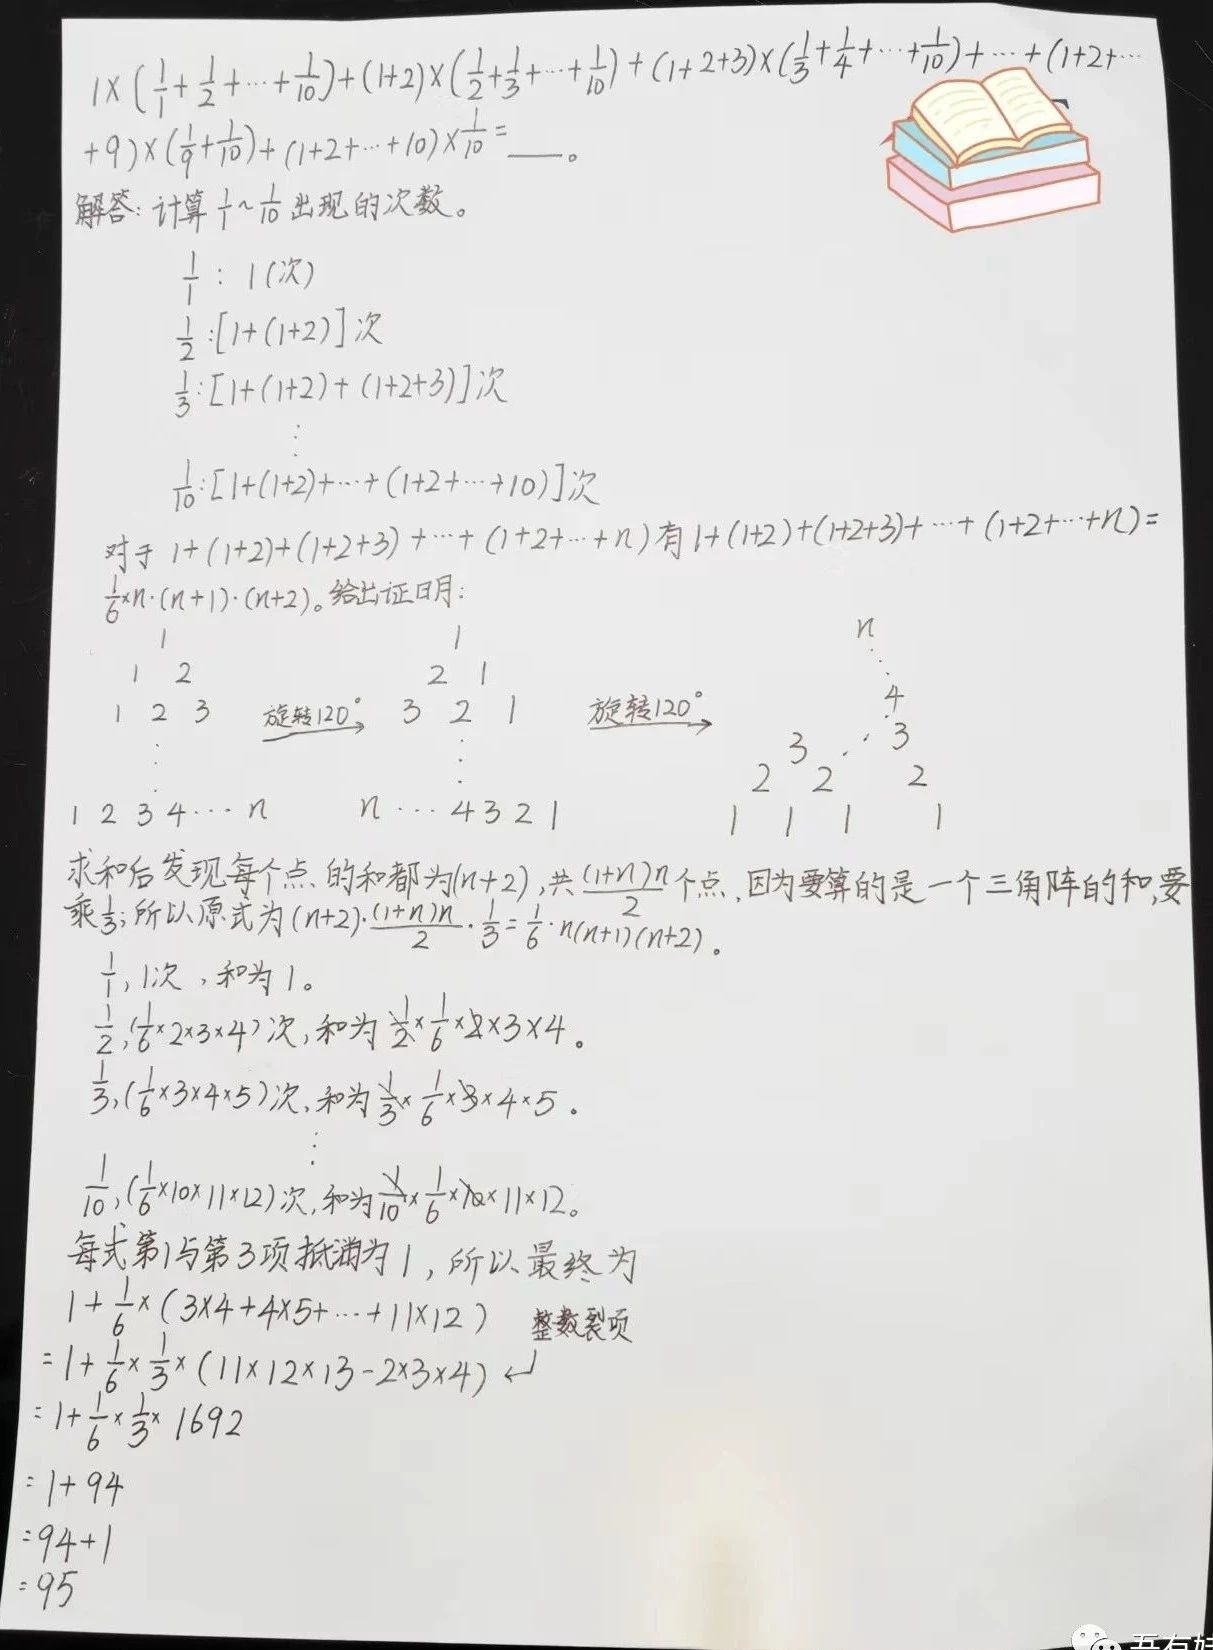 1×(1/1+1/2+…+1/10)+(1+2)×(1/2+1/3+…+1/10)+(1+2+3)×(1/3+1/4+…+1/10)+…+(1+2+…
+9)×(1/9+1/10)+(1+2+…+10)×1/10=___。
解答:计算1/1~1/10出现的次数。
1/1:1(次)
1/2:[1+(1+2)]次
1/3:[1+(1+2)+(1+2+3)]次
⋮
1/10:[1+(1+2)+…+(1+2+…+10)]次
对于1+(1+2)+(1+2+3)+…+(1+2+…+n)有1+(1+2)+(1+2+3)+…+(1+2+…+n)=
1/6×n·(n+1)·(n+2)。给出证明:
1 1 n
1 2 2 1 ⋱ 4
1 2 3 旋转120°→ 3 2 1 旋转120°→ 3 ⋰ 3
⋮ ⋮ 2 2 2
1 2 3 4 … n n … 4 3 2 1 1 1 1 1
求和后发现每个点的和都为(n+2),共(1+n)n/2个点,因为要算的是一个三角阵的和,要
乘1/3;所以原式为(n+2)·(1+n)n/2·1/3=1/6·n(n+1)(n+2)。
1/1,1次,和为1。
1/2,(1/6×2×3×4)次,和为1/2×1/6×2×3×4。
1/3,(1/6×3×4×5)次,和为1/3×1/6×3×4×5。
⋮
1/10,(1/6×10×11×12)次,和为1/10×1/6×10×11×12。
每式第1与第3项抵消为1,所以最终为
1+1/6×(3×4+4×5+…+11×12) 整数裂项
=1+1/6×1/3×(11×12×13-2×3×4)↵
=1+1/6×1/3×1692
=1+94
=94+1
=95